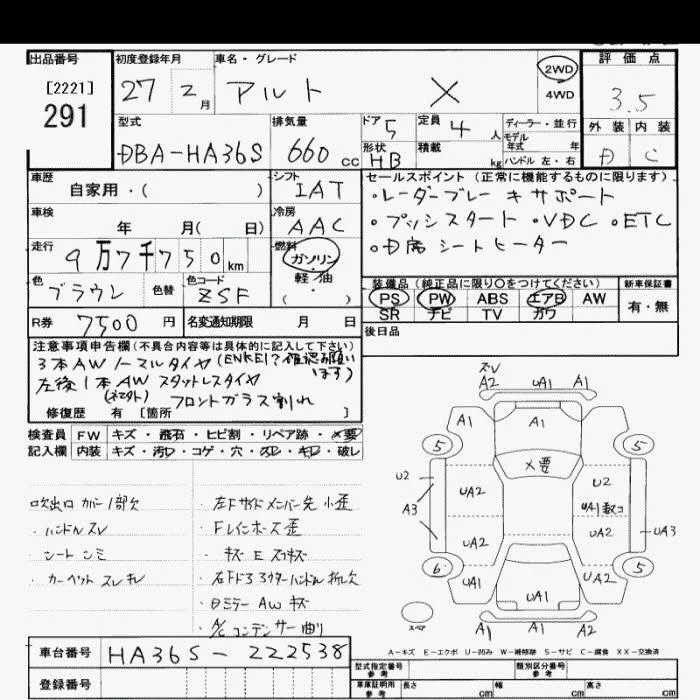 出品番号
[2221]
291
初度登録年月
27 2月
車名・グレード
アルト X
2WD
4WD
評価点
3.5
外装 内装
D C
型式
DBA-HA36S
排気量
660 cc
ドア 5
定員 4 人
ディーラー・並行
モデル年式 年
形状 HB
積載 kg
ハンドル 左・右
車歴
自家用・( )
シフト
IAT
車検
年 月( 日)
冷房
AAC
走行
9万7千750km
燃料
ガソリン
軽・油
( )
色
ブラウン
色替
色コード
ZSF
R券 7500 円
名変通知期限 月 日
セールスポイント (正常に機能するものに限ります)
・レーダーブレーキサポート
・プッシスタート ・VDC ・ETC
・D席シートヒーター
装備品 (純正品に限り○をつけてください)
新車保証書
PS PW ABS エアB AW
SR ナビ TV カワ
有・無
後日品
注意事項申告欄(不具合内容等は具体的に記入して下さい)
3本AWノーマルタイヤ(ENKEI?確認お願います)
左後1本AWスタットレスタイヤ
フロントガラス割れ
修復歴 有 [箇所 ]
検査員 FW キズ・飛石・ヒビ割・リペア跡・X要
記入欄 内装 キズ・汚D・コゲ・穴・スレ・キレ・破レ
吹出口カバー1部欠
・ハンドルスレ
・シートシミ
・カーペットスレキレ
・左Fサイドメンバー先小歪
・Fレインホース歪
・キズEスリキズ
・右Fドアアウターハンドル折レ欠
・DミラーAWキズ
・A/Cコンデンサー曲り
ズレ
A2 UA1 A1
A1 A1
5 5
X要
U2 U2
UA2 UA1数コ
A3
UA2 UA2 UA3
6 5
UA1 UA1 UA2
スペア
A1 A1 A2
A-キズ E-エクボ U-凹み W-補修跡 S-サビ C-腐食 XX-交換済
車台番号 HA36S-222538
登録番号
型式指定番号 参考
類別区分番号 参考
車庫証明用 参考
長さ cm
幅 cm
高さ cm